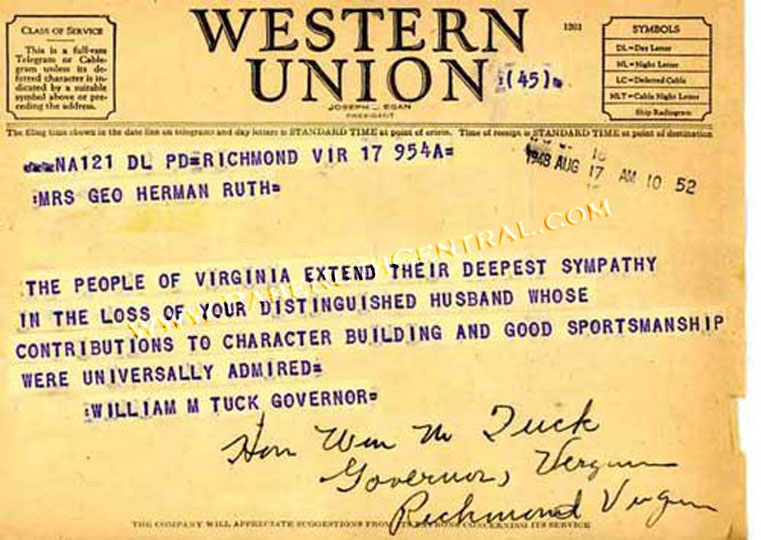 CLASS OF SERVICE
This is a full-rate
Telegram or Cable-
gram unless its de-
ferred character is in-
dicated by a suitable
symbol above or pre-
ceding the address.
WESTERN
UNION
1201
(45)
JOSEPH L. EGAN
PRESIDENT
SYMBOLS
DL=Day Letter
NL=Night Letter
LC=Deferred Cable
NLT=Cable Night Letter
Ship Radiogram
The filing time shown in the date line on telegrams and day letters is STANDARD TIME at point of origin. Time of receipt is STANDARD TIME at point of destination
NA121 DL PD=RICHMOND VIR 17 954A=
1948 AUG 17 AM 10 52
:MRS GEO HERMAN RUTH=
www.BabeRuthCentral.com
THE PEOPLE OF VIRGINIA EXTEND THEIR DEEPEST SYMPATHY
IN THE LOSS OF YOUR DISTINGUISHED HUSBAND WHOSE
CONTRIBUTIONS TO CHARACTER BUILDING AND GOOD SPORTSMANSHIP
WERE UNIVERSALLY ADMIRED=
:WILLIAM M TUCK GOVERNOR=
Hon Wm M Tuck
Governor, Virginia
Richmond Virginia
THE COMPANY WILL APPRECIATE SUGGESTIONS FROM ITS PATRONS CONCERNING ITS SERVICE